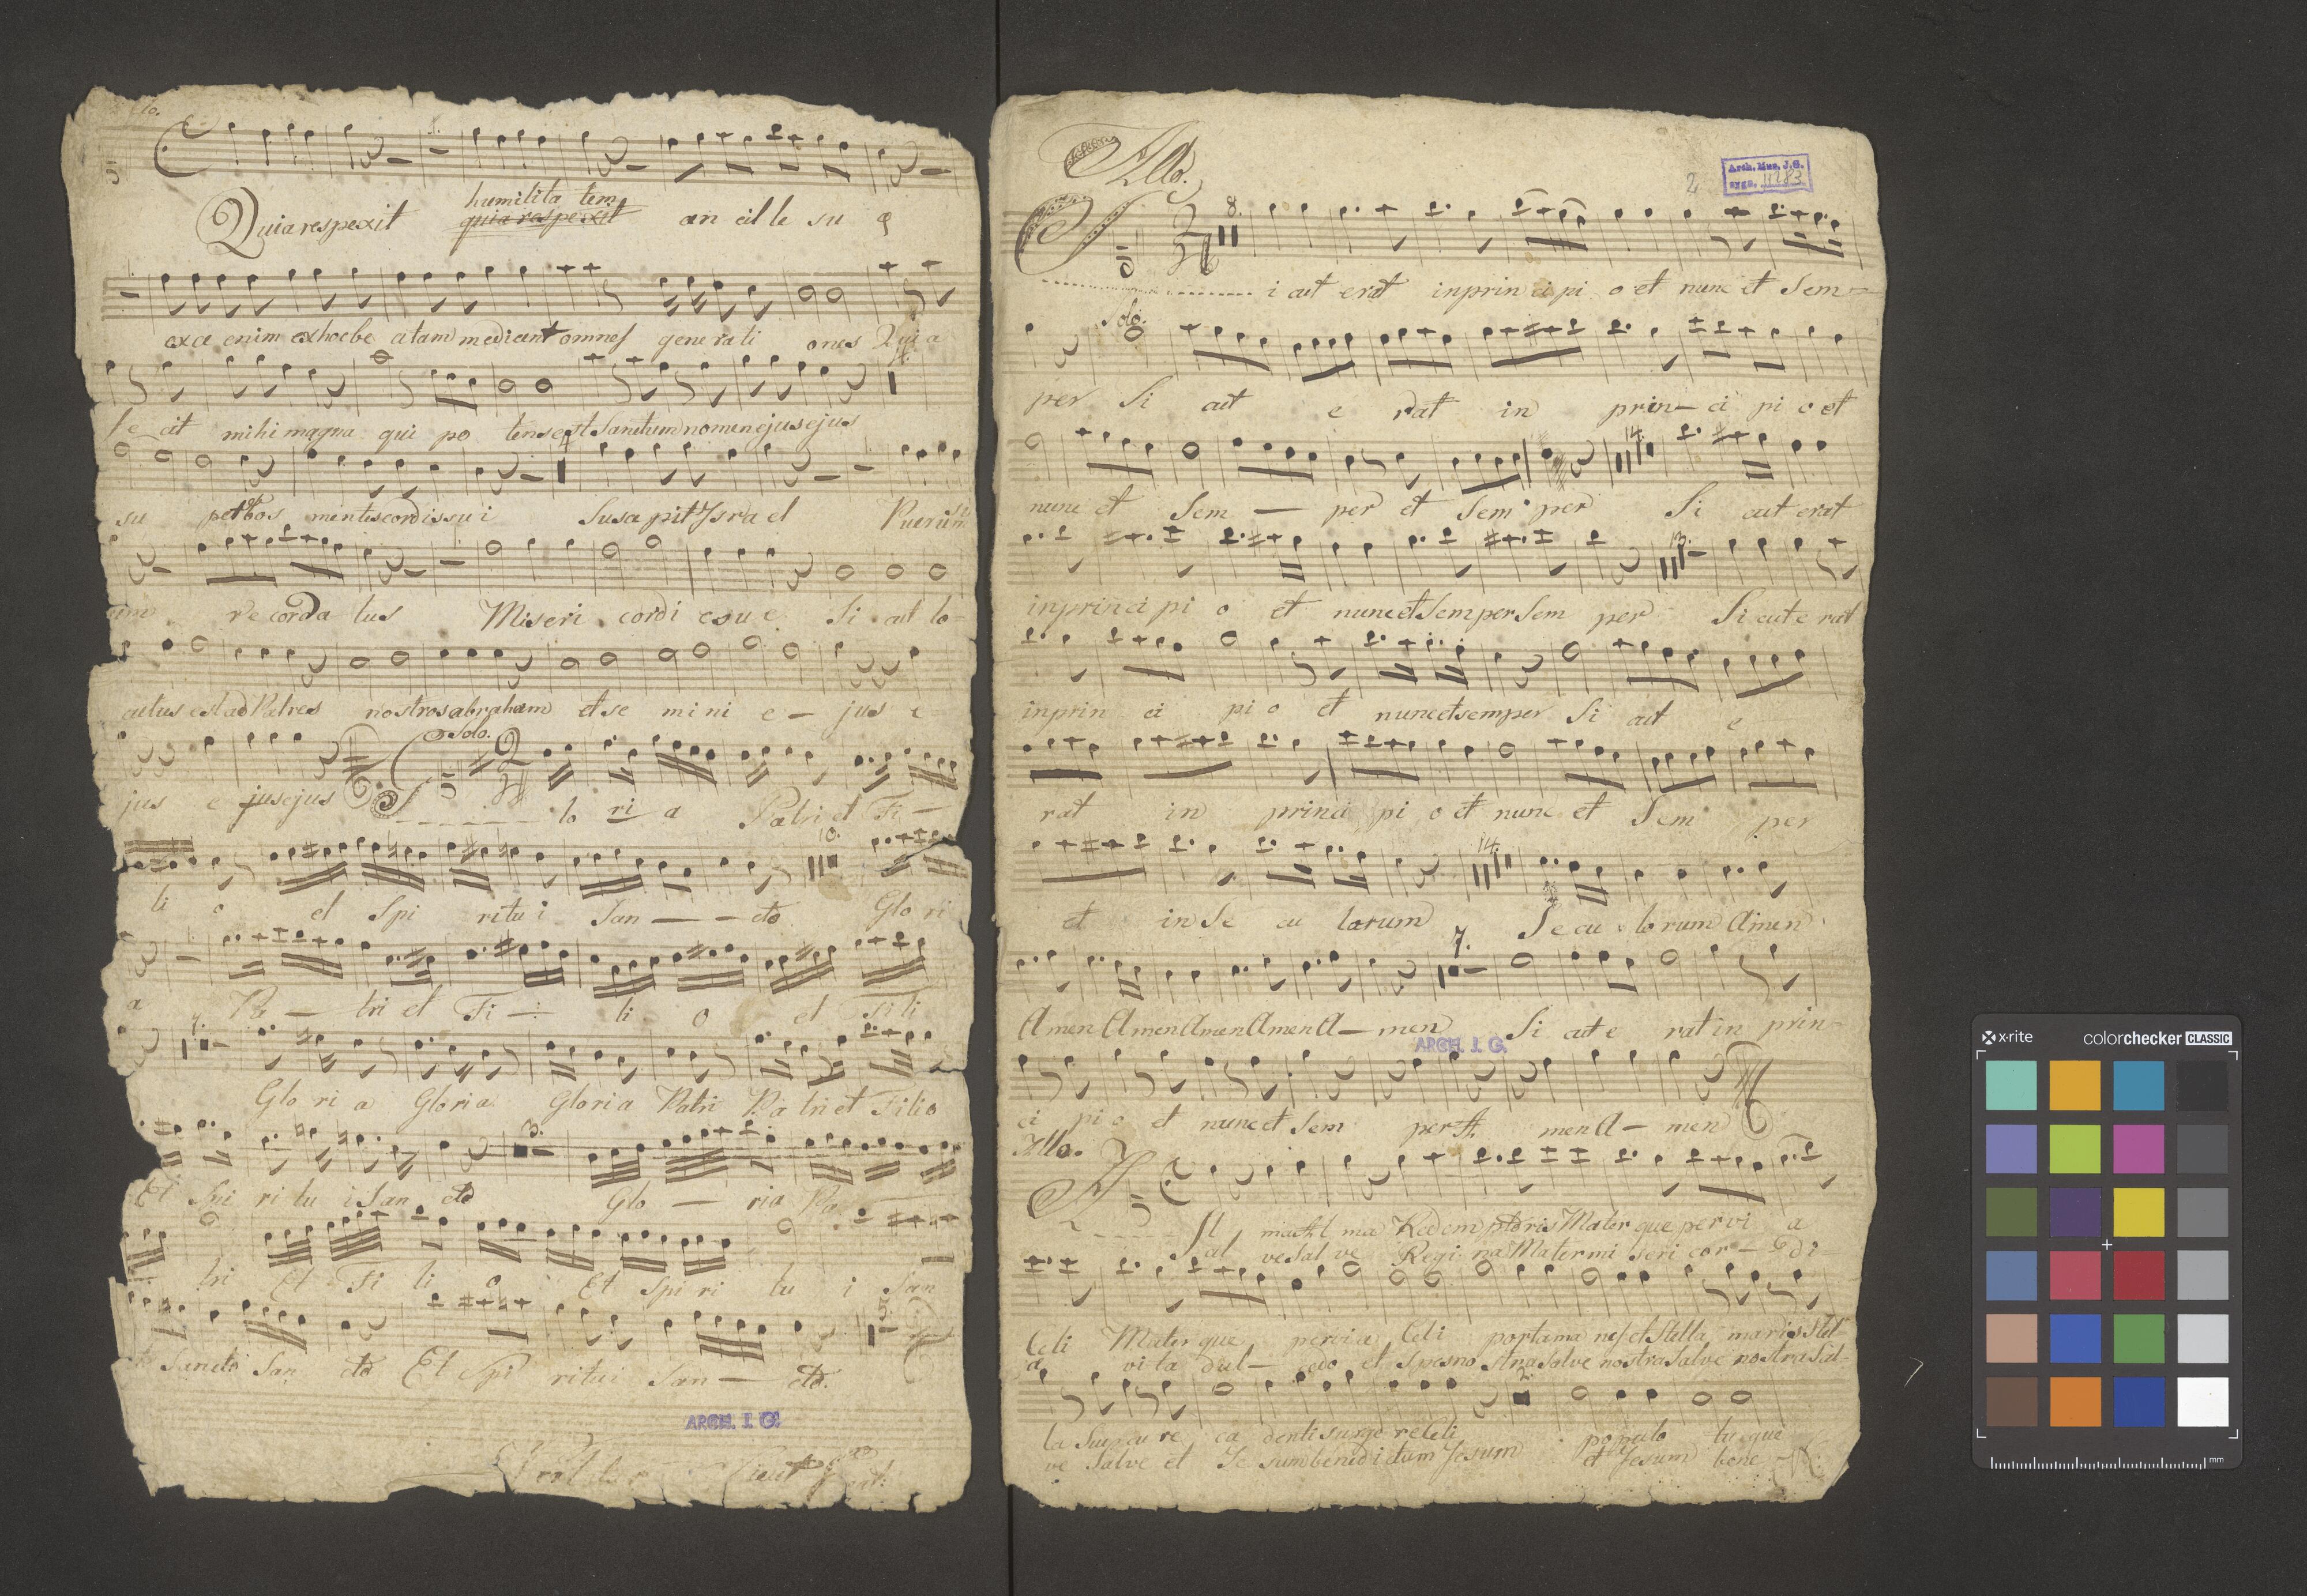 Quia respexit humilita tem quia respexit an cil le su e
exce enim exhocbe atam medicent omnes generati ones Quia
fe cit mihi magna qui po tensest Sanctum nomen ejus ejus
4
su perbos mentiscordissu i Susa pit Jsra el Puerum
um re corda tus Miseri cordi esue Si cut lo-
cutus est ad Patres nostros abraham etse mi ni e - jus e
Solo.
jus e jusejus lo ri a Patri et Fi -
10.
li o et Spi ritu i San - - cto Glo ri
a Pa - tri et Fi - li o et Fi li
7.
Glo ri a Gloria Gloria Patri Pa tri et Filio
3.
Et Spi ri tu i San cto Glo - ria Pa
tri Et Fi li o Et spi ri tu i San
5.
Sancto San cto Et Spi ritui San - cto.
ARCH. J. G.
Sicut
2
Arch. Mus. J.G.
sygn. II 283
Allo.
8.
S i cut erat inprin ci pi o et nunc et Sem-
Solo.
per Si cut e rat in prin- ci pi o et
14.
nunc et Sem - per et Sem per Si cut erat
13.
inprinci pi o et nunc et Semper Sem per Si cut e rat
inprin ci pi o et nunc et semper Si cut e
rat in princi pi o et nunc et Sem per
14.
et in Se cu lorum Se cu lo rum Amen
7.
Amen Amen Amen Amen A- men Si cut e rat in prin-
ARCH. J. G.
ci pi o et nunc et Sem per A men A- men
Allo.
Al maAl ma Redemptoris Mater que pervi a
Sal veSal ve Regi na Mater mi seri cor - di
Celi Mater que pervia Celi porta ma nes et Stella maris Stel-
a vi ta dul- cedo et spes no stra Salve nostra Salve nostra Sal-
2.
la Sucu re ca denti surge re Celi populo tu que
ve Salve et Je sum benedictum Jesum et Jesum bene
x-rite colorchecker CLASSIC
mm